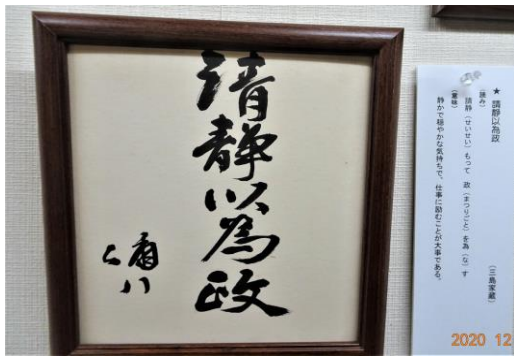 清静以為政
彌八
★ 請静以為政
(三島家蔵)
(読み)
請静(せいせい)もって 政(まつりごと)を為(な)す
(意味)
静かで穏やかな気持ちで、仕事に励むことが大事である。
2020 12